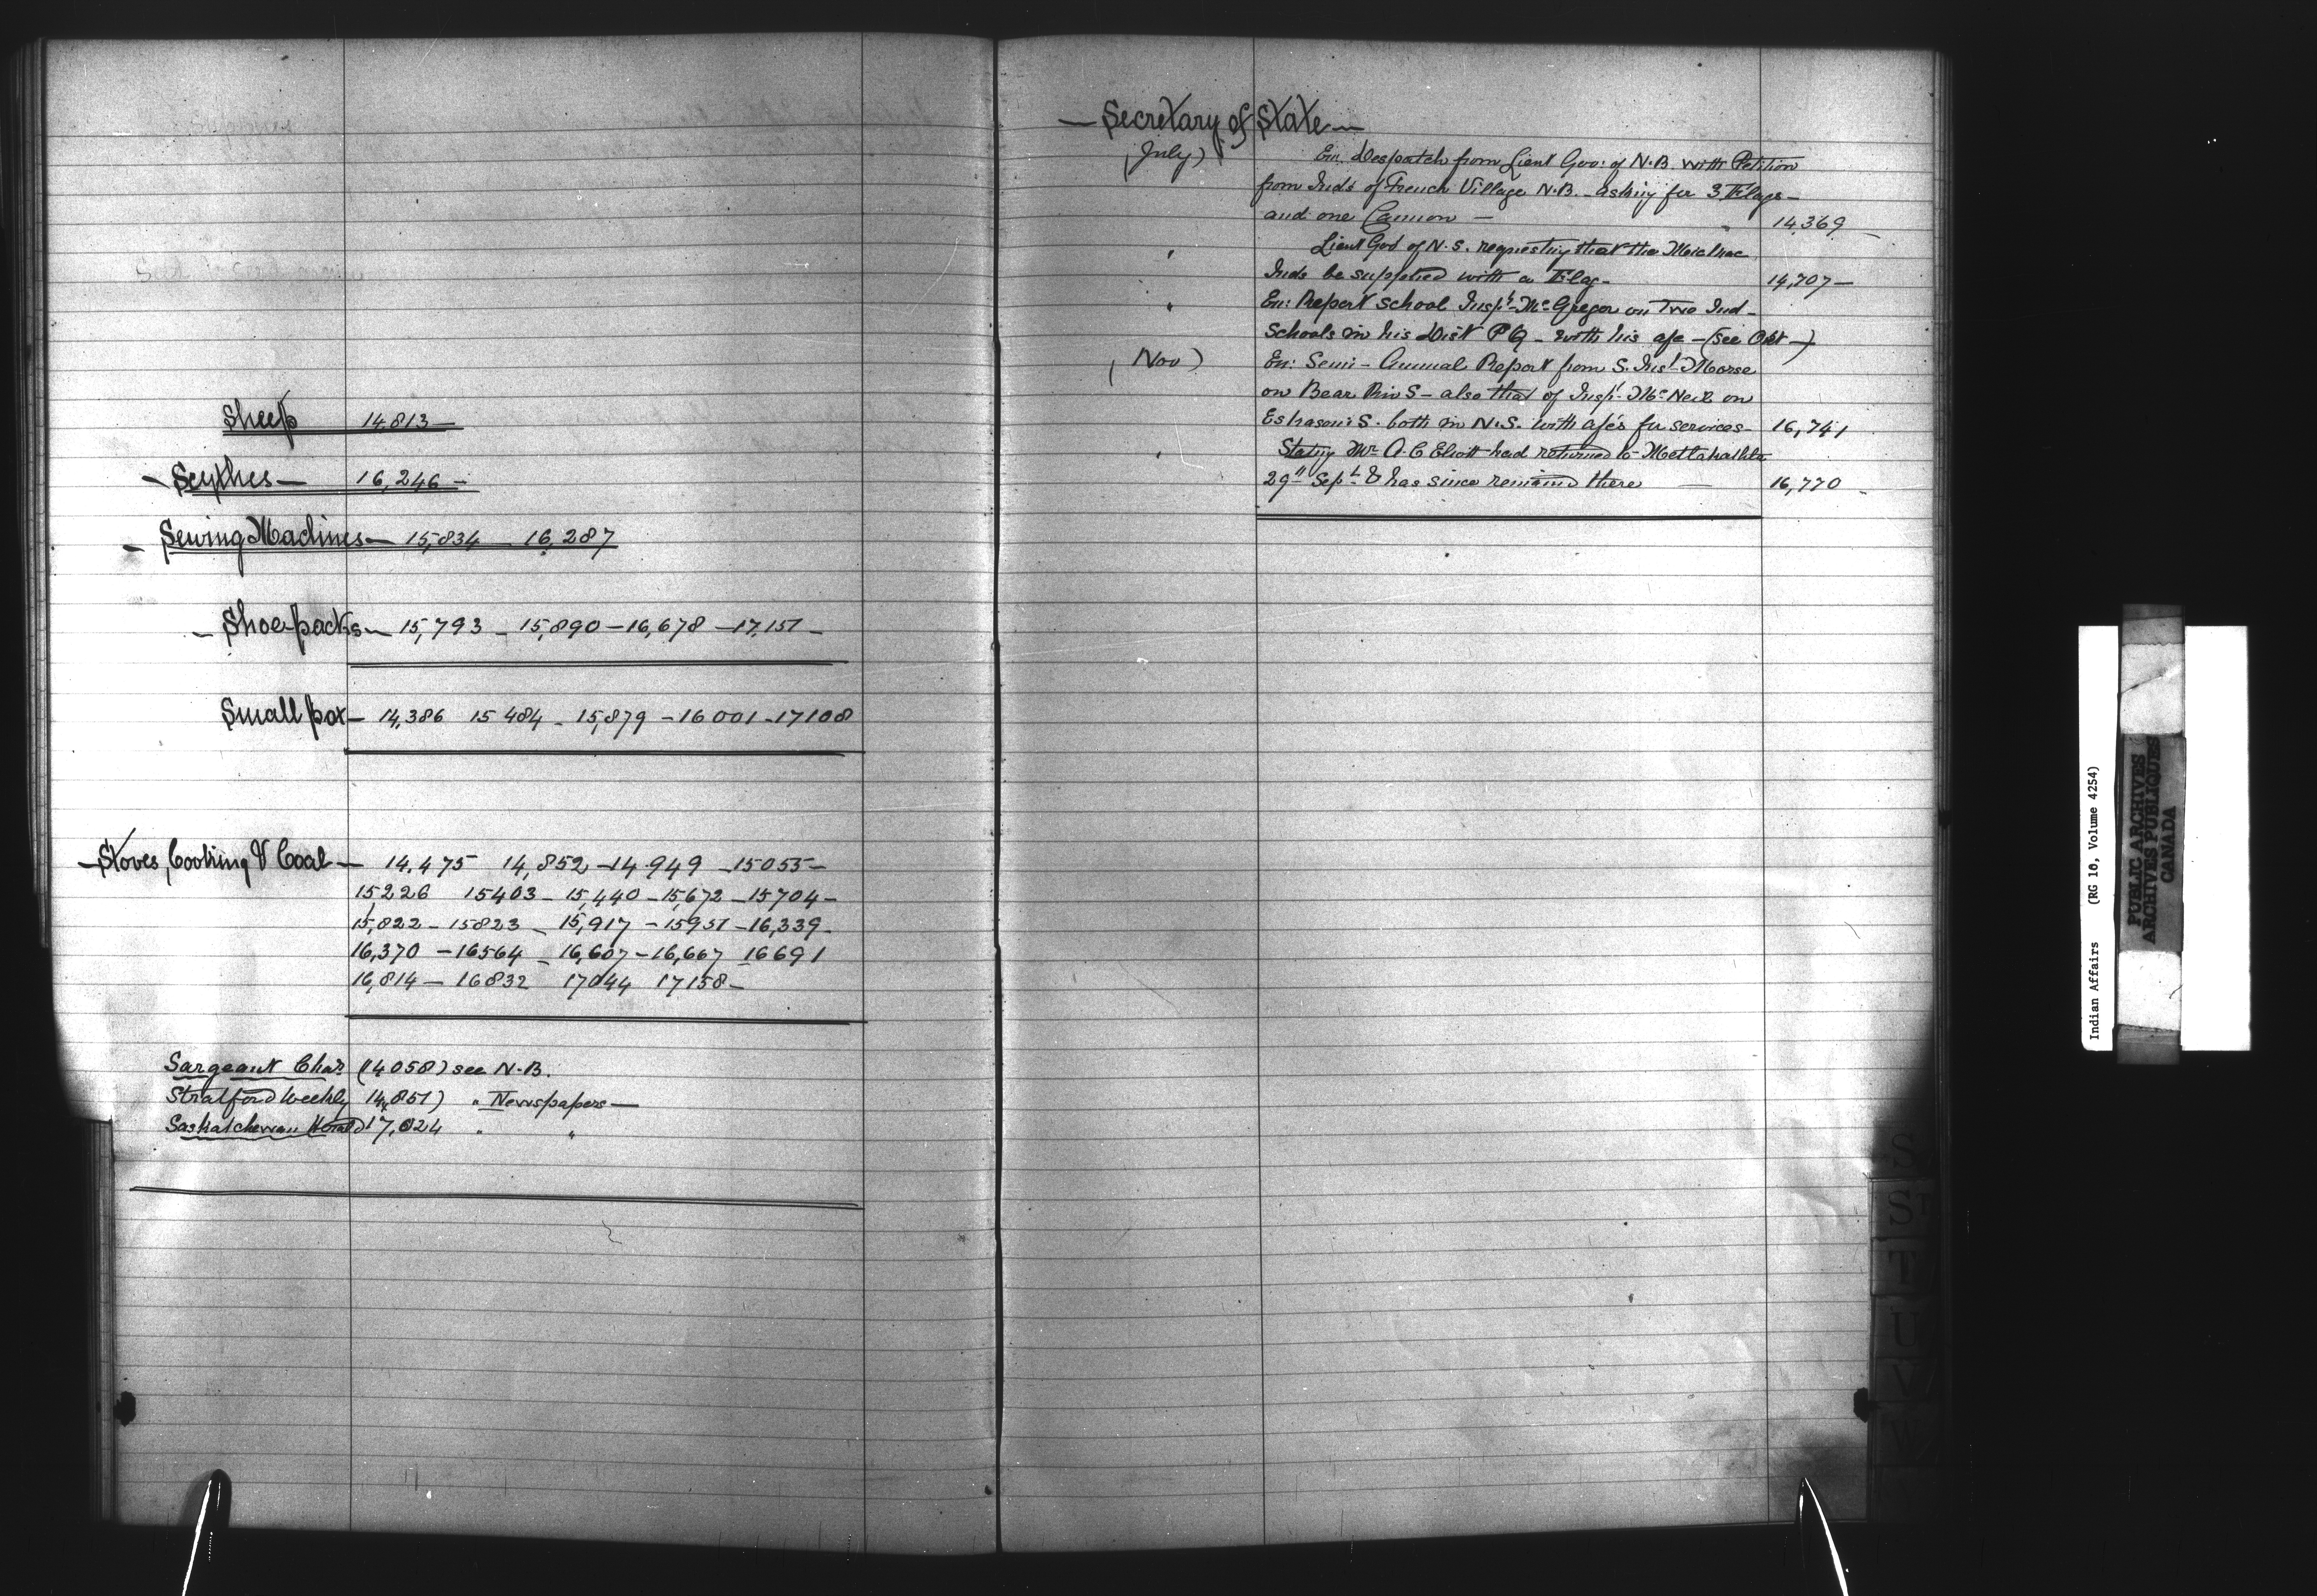 Sheep 14,813—
— Scythes — 16,246 —
— Sewing Machines — 15,834 16,287
— Shoepacks — 15,793 — 15,890 — 16,678 — 17,151 —
Small pox — 14,386 15484 — 15,879 — 16001 — 17108
— Stoves, Cooking & Coal — 14,475 14,852 — 14949 — 15055 —
15226 15403 — 15,440 — 15,672 — 15704 —
15,822 — 15823 — 15,917 — 15951 — 16,339 —
16,370 — 16564 — 16,607 — 16,667 16691
16,814 — 16832 17044 17158 —
Sargeant Chas (14058) see N.B.
Stratford Weekly 14,851) " Newspapers —
Saskatchewan Herald 17,024 " "
— Secretary of State —
(July) En. Despatch from Lieut Gov: of N.B. with Petition
from Inds of French Village N.B. — asking for 3 Flags —
and one Cannon — 14,369 —
" Lieut Gov of N.S. requesting that the Micmac
Inds be supplied with a Flag — 14,707 —
" En: Report School Inspr McGregor on Two Ind —
Schools in his Dist P Q — with his a/c — (see Oct —)
(Nov) En: Semi-Annual Report from S. Inst Morse
on Bear Riv S — also that of Inspr McNeil on
Eskasoni S. both in N.S. with a/cs for services — 16,741
" Stating Mr A. C Elliott had returned to Metlakahtla
29th Sept & has since remained there — 16,770 —
S
T
U
V
W
Indian Affairs (RG 10, Volume 4254)
PUBLIC ARCHIVES
ARCHIVES PUBLIQUES
CANADA